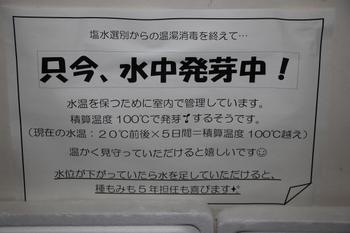 塩水選別からの温湯消毒を終えて…
只今、水中発芽中！
水温を保つために室内で管理しています。
積算温度100℃で発芽するそうです。
（現在の水温：20℃前後×5日間＝積算温度100℃越え）
温かく見守っていただけると嬉しいです☺
水位が下がっていたら水を足していただけると、
種もみも5年担任も喜びます